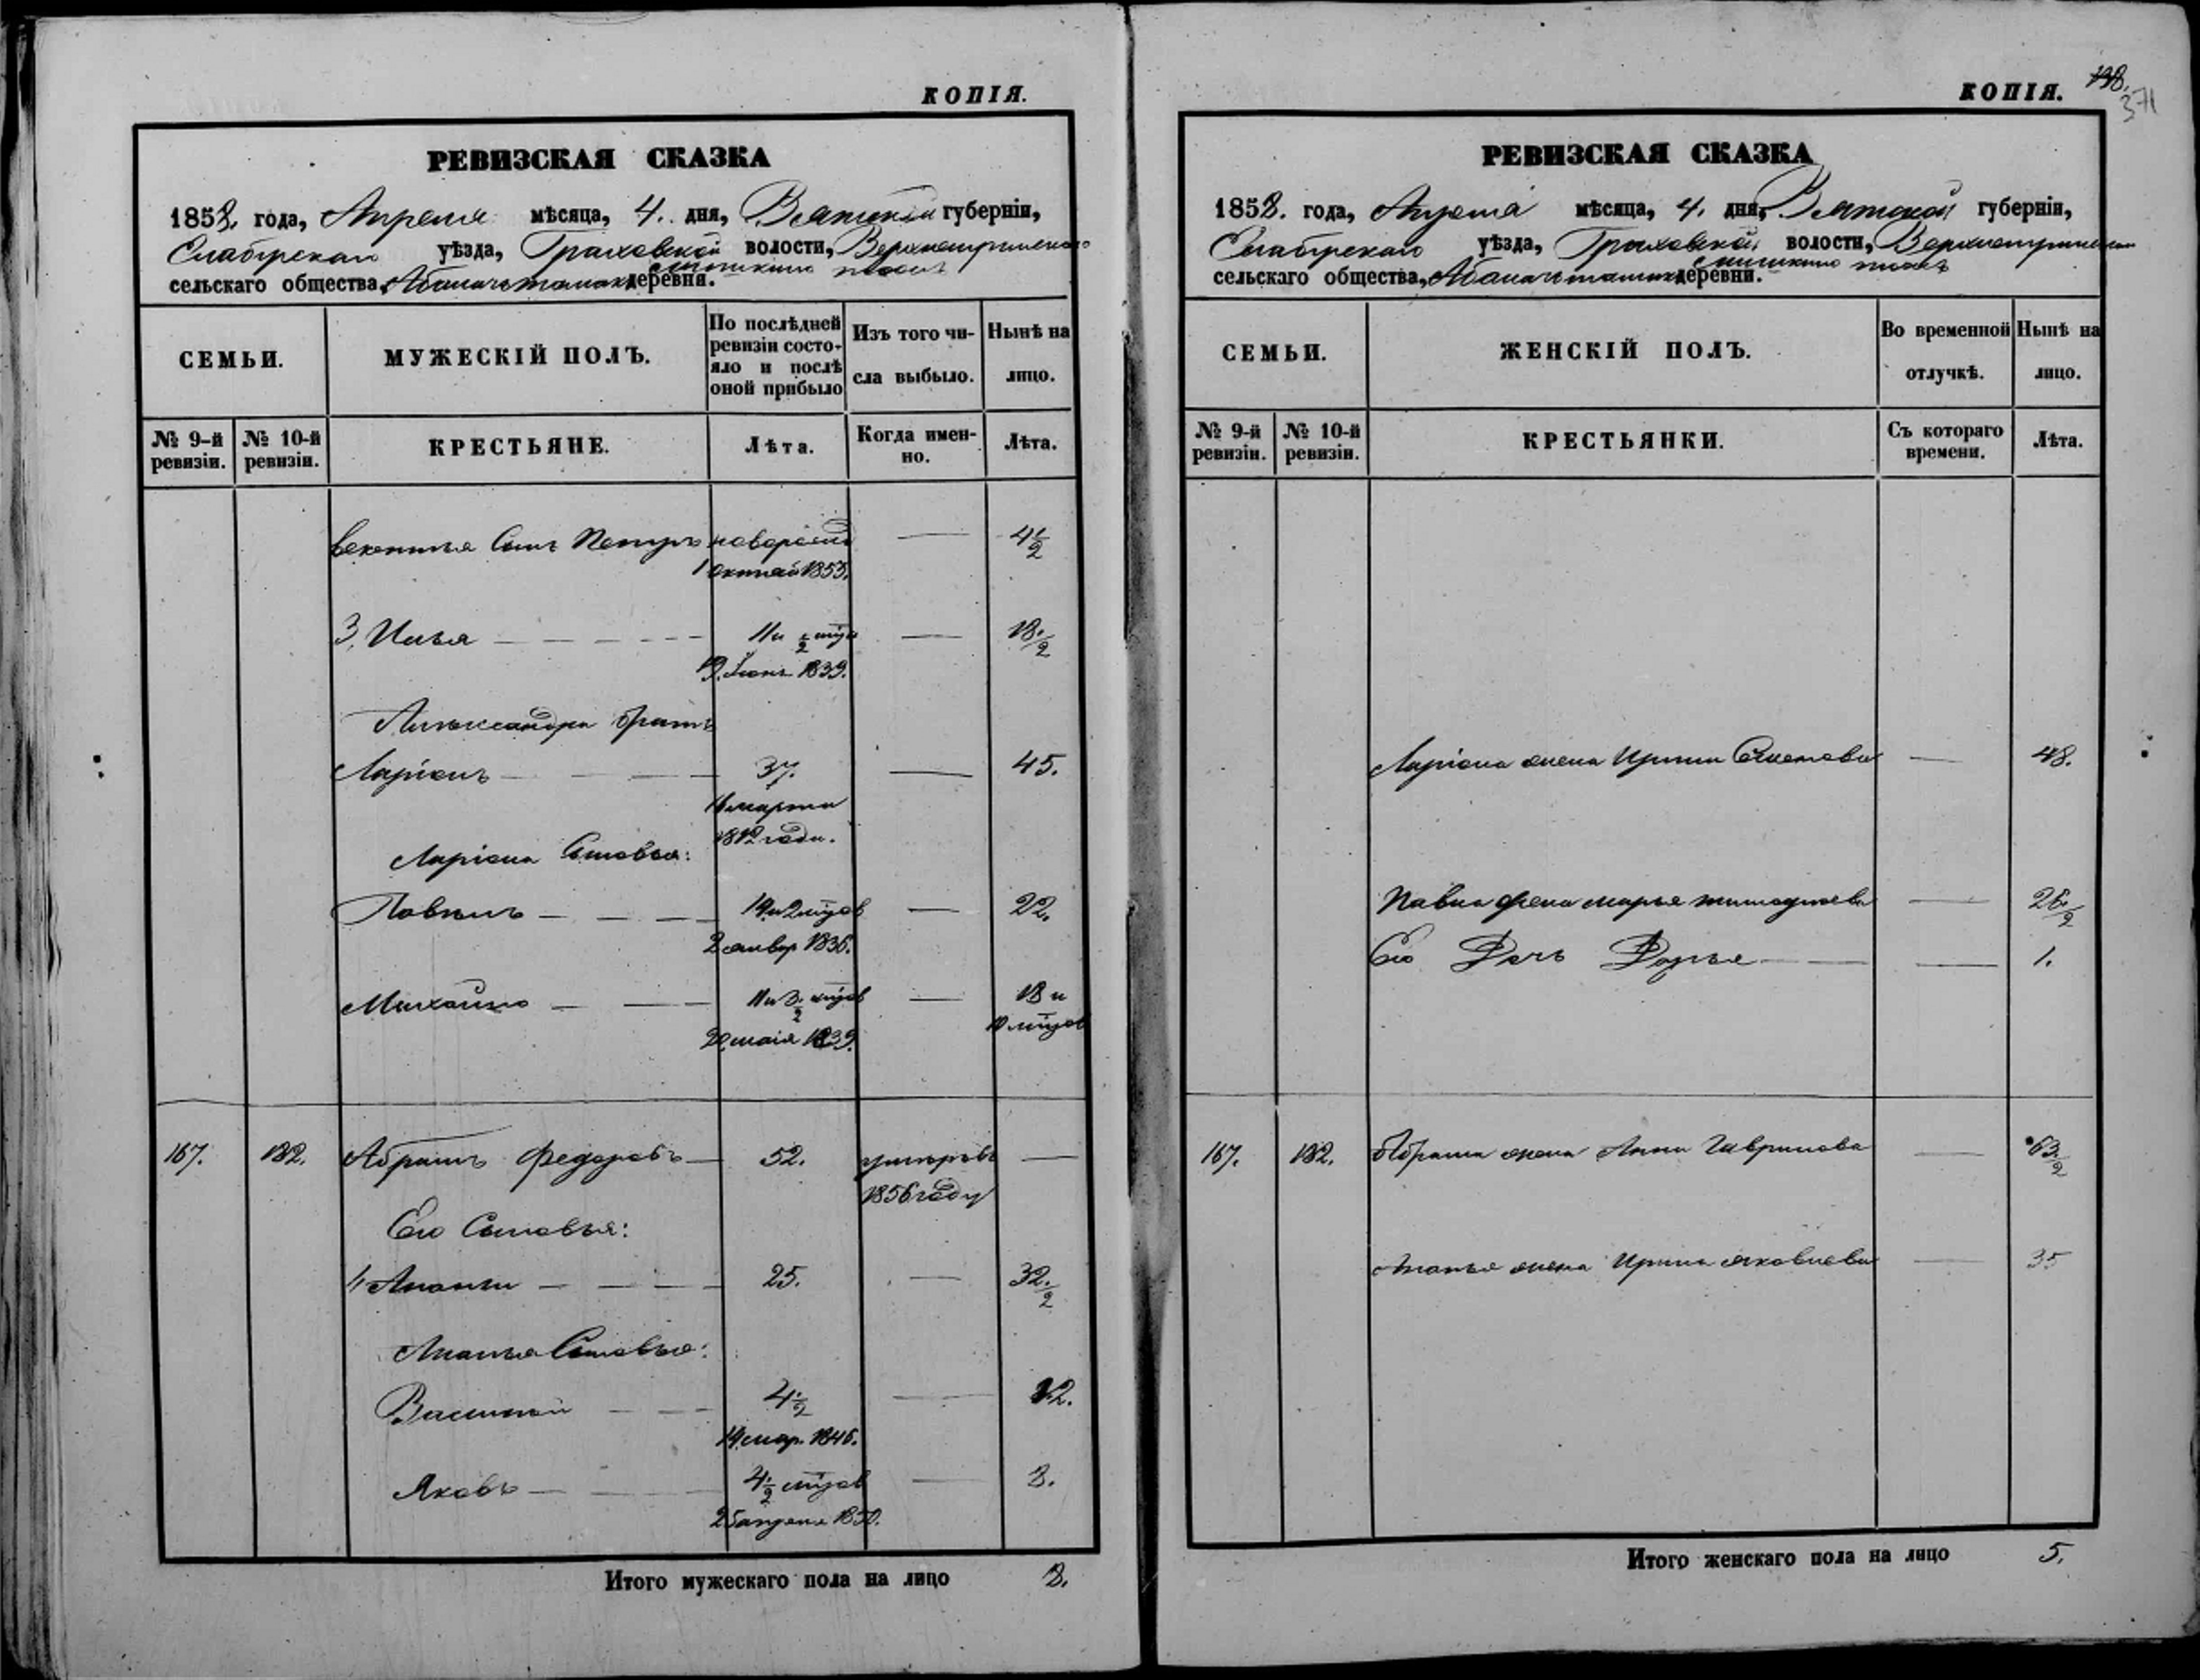 КОПІЯ.
РЕВИЗСКАЯ СКАЗКА
1858. года, Апреля мѣсяца, 4. дня, Вятской губерніи,
Елабужскаго уѣзда, Граховской волости,
сельскаго общества, деревни.
СЕМЬИ.
МУЖЕСКІЙ ПОЛЪ.
По послѣдней ревизіи состо-
яло и послѣ оной прибыло
Изъ того чи-
сла выбыло.
Нынѣ на
лицо.
№ 9-й ревизіи.
№ 10-й ревизіи.
КРЕСТЬЯНЕ.
Лѣта.
Когда имен-
но.
Лѣта.
Сынъ Петръ новорожд — 4 1/2
1 октяб 1853.
3, Илья — 11 и 1/2 — 18 1/2
1839.
Александра братъ
Ларіонъ — 37. — 45.
марта
1812 года.
Ларіона Сыновья:
Павелъ — 2 мѣсцов — 22.
2 январ 1836.
Михайло — — 18 и
10 мѣсцов
20 маія 1839.
167. 182. Абрамъ Федоровъ — 52. умеръ въ —
1856 году
Его Сыновья:
1, Ананій — 25. — 32 1/2
Ананья Сыновья:
Василей — 4 1/2 — 12.
14 мар. 1846.
Яковъ — 4 1/2 мѣсцов — 8.
25 апреля 1850.
Итого мужескаго пола на лицо 8.
КОПІЯ.
371
РЕВИЗСКАЯ СКАЗКА
1858. года, Апреля мѣсяца, 4. дня, Вятской губерніи,
Елабужскаго уѣзда, Граховской волости,
сельскаго общества, деревни.
СЕМЬИ.
ЖЕНСКІЙ ПОЛЪ.
Во временной
отлучкѣ.
Нынѣ на
лицо.
№ 9-й ревизіи.
№ 10-й ревизіи.
КРЕСТЬЯНКИ.
Съ котораго
времени.
Лѣта.
Ларіона жена Ирина — 48.
Павла жена Марья Тимофеева — 26 1/2
Его Дочь Дарья — 1.
167. 182. Абрама жена Анна Гаврилова — 63 1/2
Ананья жена Ирина Яковлева — 35
Итого женскаго пола на лицо 5.